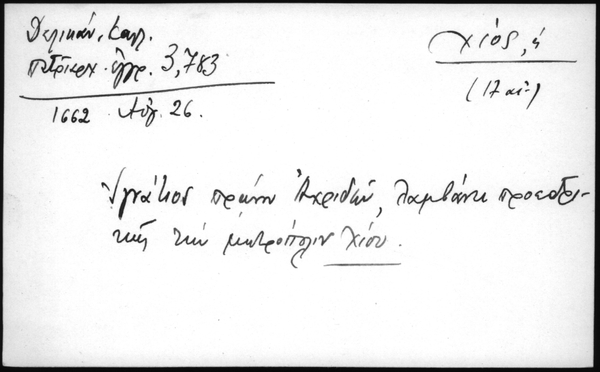 Δελικάν. Καλ.
πατριαρχ. ἔγγρ. 3,783
1662 Αὐγ. 26.
Χίος, ἡ
(17 αἰ.)
Ἰγνάτιος πρώην Ἀχριδῶν, λαμβάνει προεδρι-
κῶς τὴν μητρόπολιν Χίου.